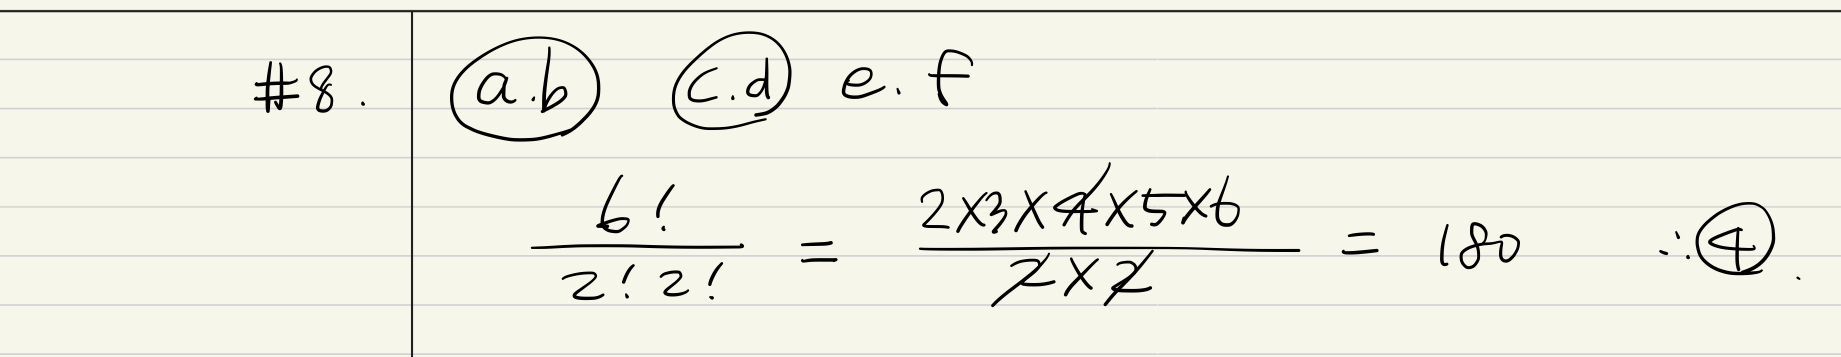 #8. a.b c.d e.f
6!/2!2! = 2×3×4×5×6/2×2 = 180 ∴④.